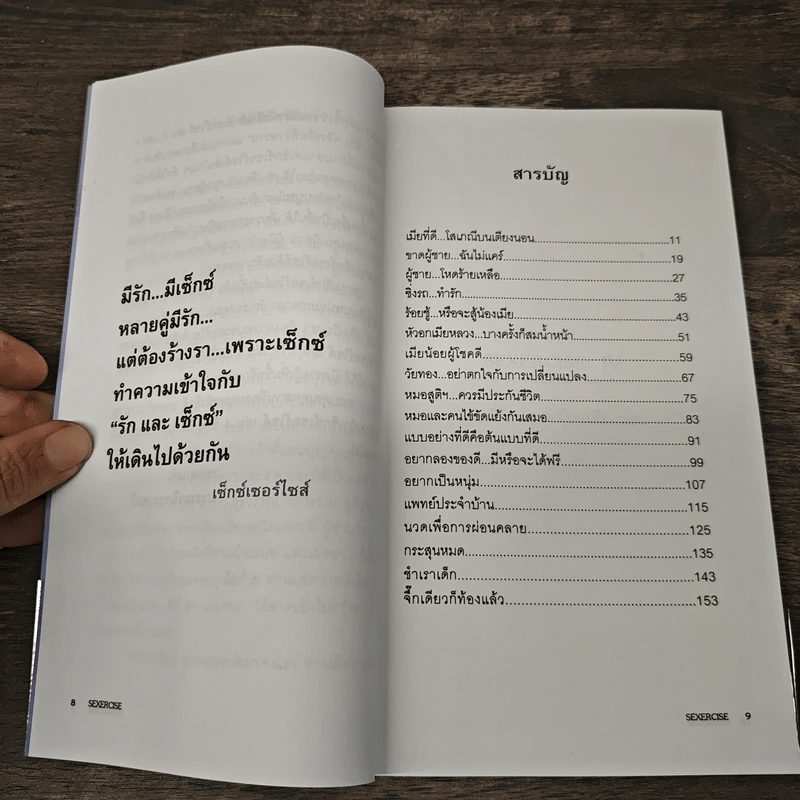 มีรัก...มีเซ็กซ์
หลายคู่มีรัก...
แต่ต้องร้างรา...เพราะเซ็กซ์
ทำความเข้าใจกับ
“รัก และ เซ็กซ์”
ให้เดินไปด้วยกัน
เซ็กซ์เซอร์ไซส์
8 SEXERCISE
สารบัญ
เมียที่ดี...โสเภณีบนเตียงนอน 11
ขาดผู้ชาย...ฉันไม่แคร์ 19
ผู้ชาย...โหดร้ายเหลือ 27
ซิ่งรถ...ทำรัก 35
ร้อยชู้...หรือจะสู้น้องเมีย 43
หัวอกเมียหลวง...บางครั้งก็สมน้ำหน้า 51
เมียน้อยผู้โชคดี 59
วัยทอง...อย่าตกใจกับการเปลี่ยนแปลง 67
หมอสูติฯ...ควรมีประกันชีวิต 75
หมอและคนไข้ขัดแย้งกันเสมอ 83
แบบอย่างที่ดีคือต้นแบบที่ดี 91
อยากลองของดี...มีหรือจะได้ฟรี 99
อยากเป็นหนุ่ม 107
แพทย์ประจำบ้าน 115
นวดเพื่อการผ่อนคลาย 125
กระสุนหมด 135
ชำเราเด็ก 143
จึ๊กเดียวก็ท้องแล้ว 153
SEXERCISE 9